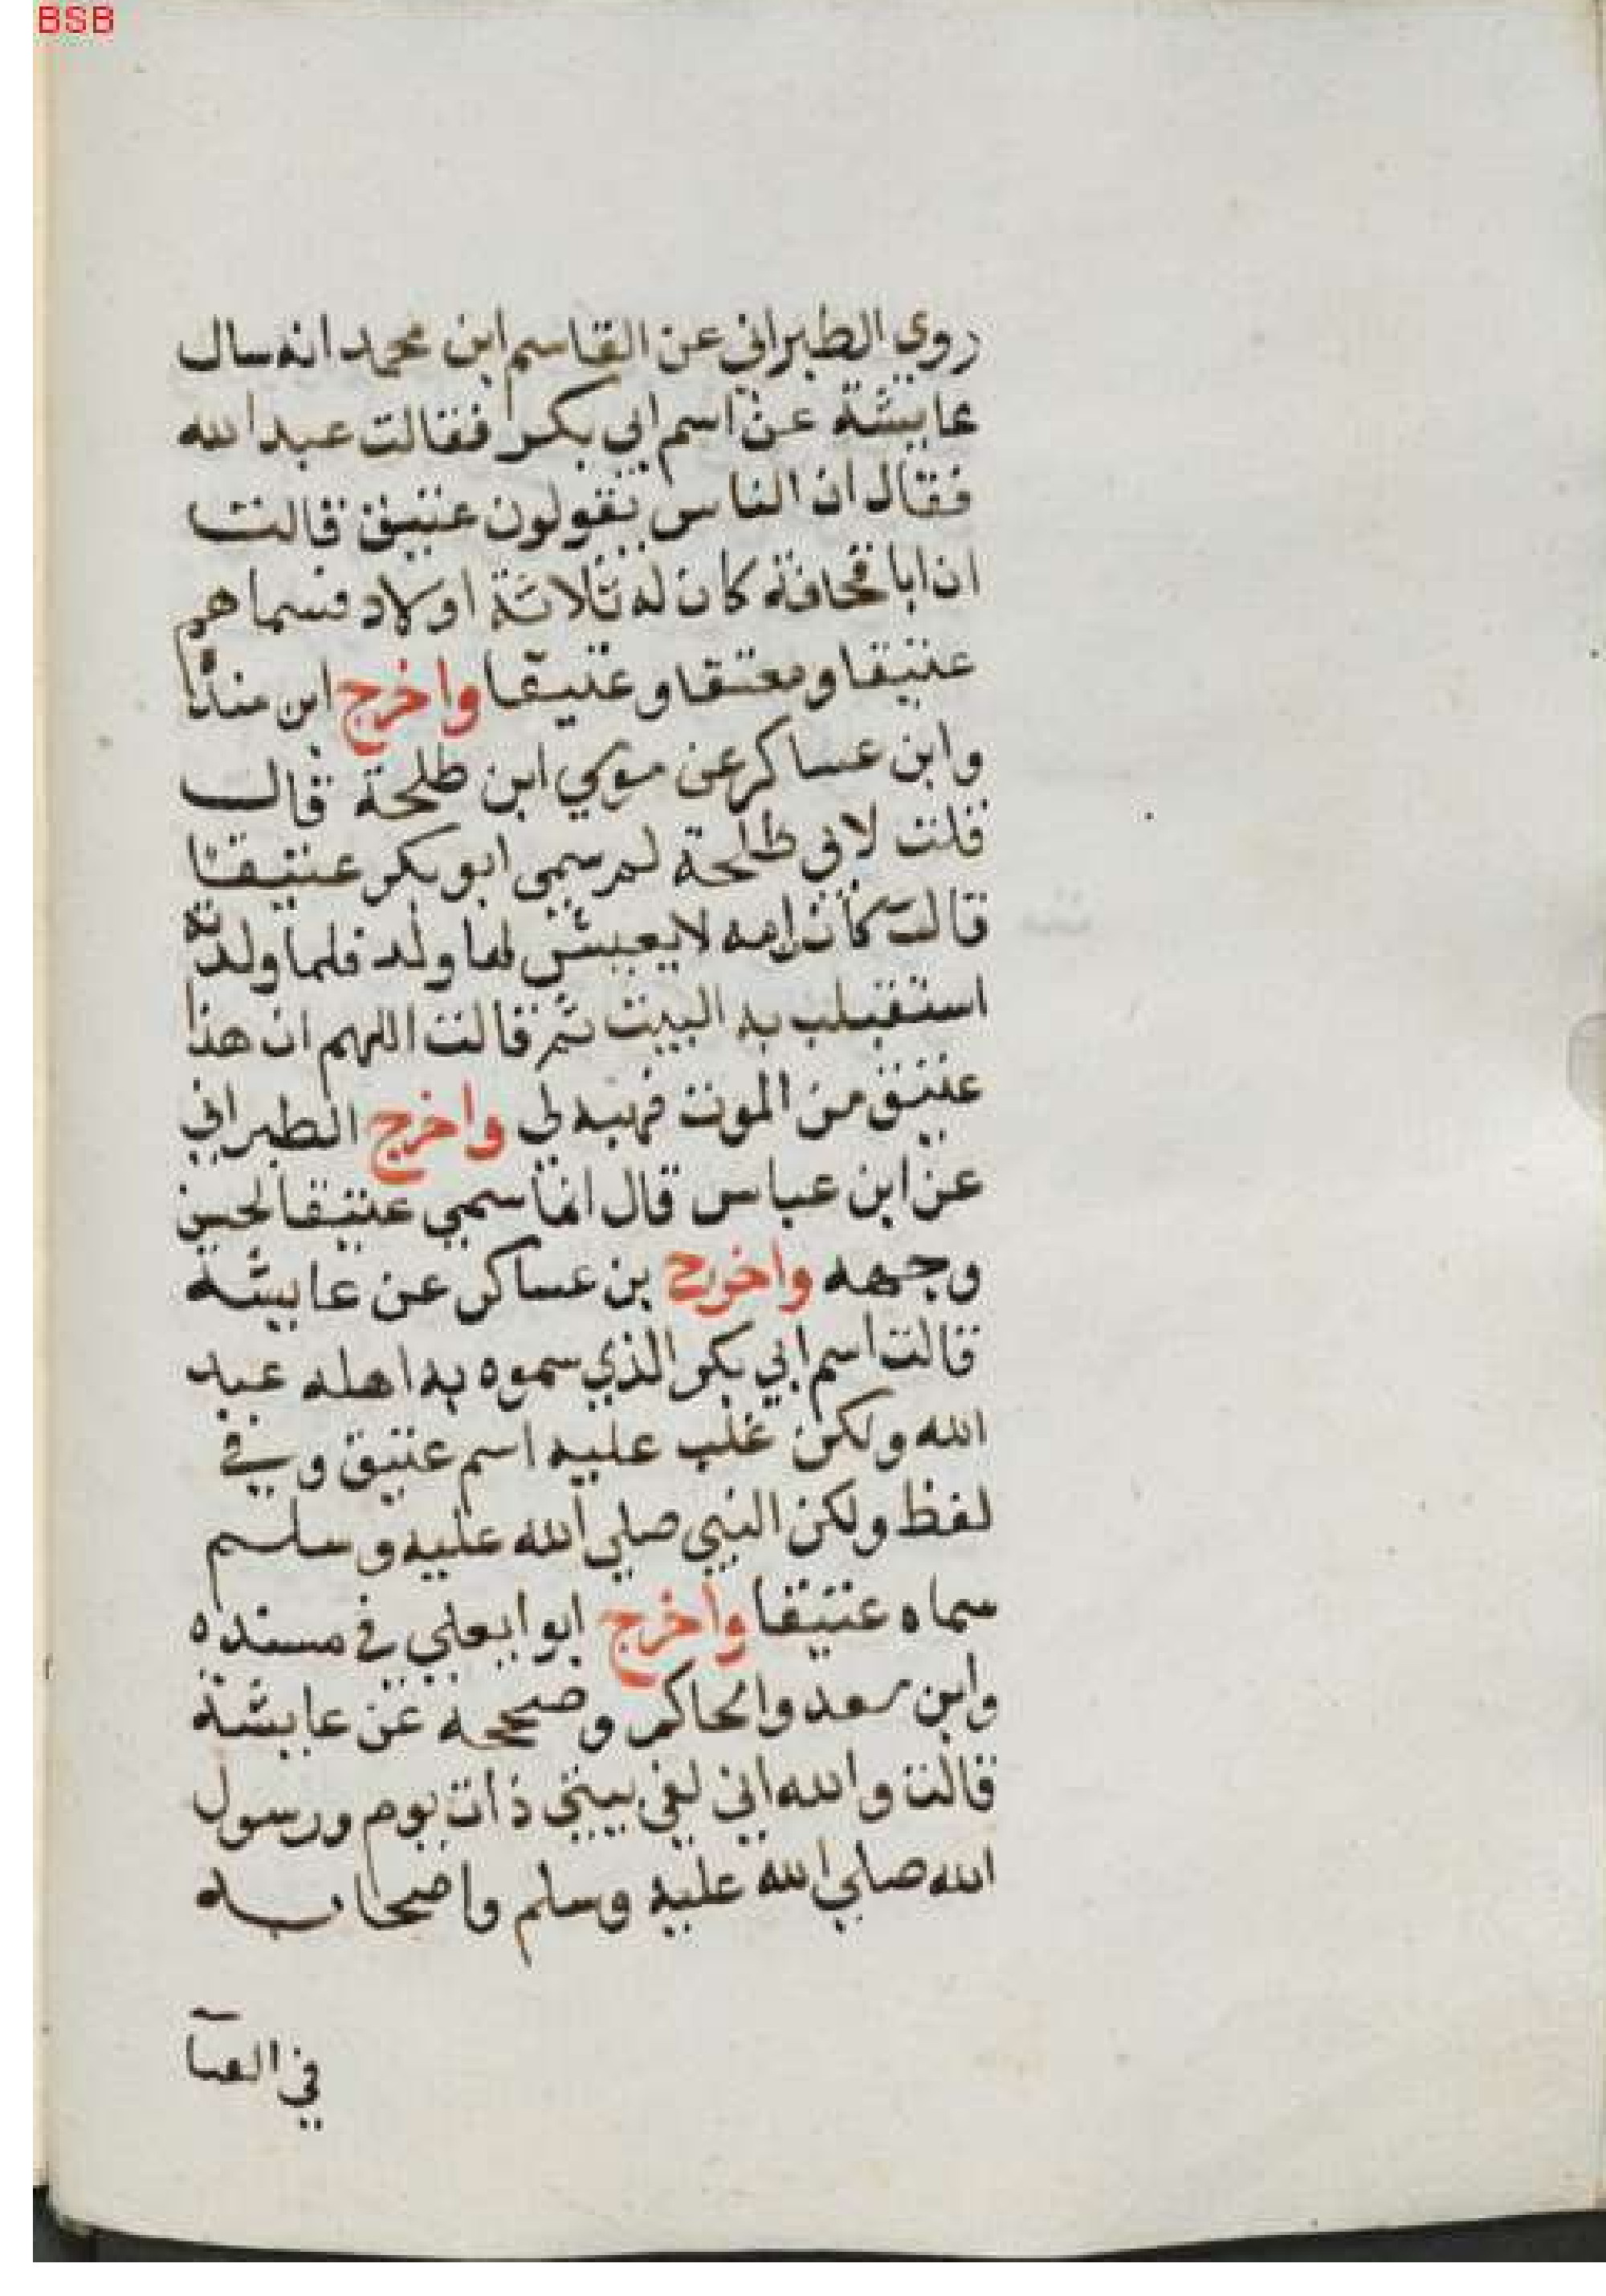 BSB
روي الطبراني عن القاسم ابن محمد انه سال
عايشة عن اسم ابي بكر فقالت عبد الله
فقال ان الناس يقولون عتيق قالت
ان ابا قحافة كان له ثلاثة اولاد فسماهم
عتيقا ومعتقا وعتيقا واخرج ابن منذا
وابن عساكر عن موسي ابن طلحة قال
قلت لابي طلحة لم سمي ابو بكر عتيقا
قالت كانت امه لا يعيش لها ولد فلما ولدته
استقبلت به البيت ثم قالت اللهم ان هذا
عتيق من الموت فهبه لي واخرج الطبراني
عن ابن عباس قال انما سمي عتيقا لحسن
وجهه واخرج بن عساكر عن عايشة
قالت اسم ابي بكر الذي سموه به اهله عبد
الله ولكن غلب عليه اسم عتيق وفي
لفظ ولكن النبي صلي الله عليه وسلم
سماه عتيقا واخرج ابوا يعلي في مسنده
وابن سعد والحاكم وصححه عن عايشة
قالت والله اني لفي بيتي ذات يوم ورسول
الله صلي الله عليه وسلم واصحابه
في الفنا